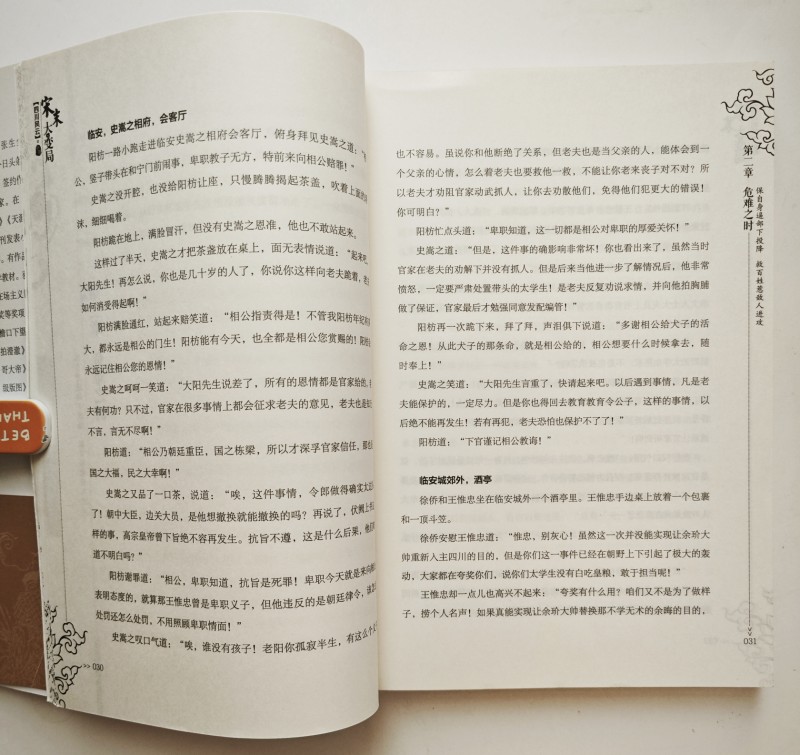 宋末大变局
临安，史嵩之相府，会客厅
阳枋一路小跑走进临安史嵩之相府会客厅，俯身拜见史嵩之道：“
公，竖子带头在和宁门前闹事，卑职教子无方，特前来向相公赔罪！”
史嵩之没开腔，也没给阳枋让座，只慢腾腾揭起茶盖，吹着上面的
沫，细细喝着。
阳枋跪在地上，满脸冒汗，但没有史嵩之恩准，他也不敢站起来。
这样过了半天，史嵩之才把茶盏放在桌上，面无表情说道：“起来吧，
大阳先生！再怎么说，你也是几十岁的人了，你说你这样向老夫跪着，老
如何消受得起啊！”
阳枋满脸通红，站起来赔笑道：“相公指责得是！不管我阳枋年纪有
大，都永远是相公的门生！阳枋能有今天，也全都是相公您赏赐的！阳枋
永远记住相公您的恩情！”
史嵩之呵呵一笑道：“大阳先生说差了，所有的恩情都是官家给他，
夫有何功？只不过，官家在很多事情上都会征求老夫的意见，老夫也是知
不言，言无不尽啊！”
阳枋道：“相公乃朝廷重臣，国之栋梁，所以才深孚官家信任，那也
国之大福，民之大幸啊！”
史嵩之又品了一口茶，说道：“唉，这件事情，令郎做得确实太
了！朝中大臣，边关大员，是他想撤换就能撤换的吗？再说了，伏阙上
样的事，高宗皇帝曾下旨绝不容再发生。抗旨不遵，这是什么后果，他
道不明白吗？”
阳枋谢罪道：“相公，卑职知道，抗旨是死罪！卑职今天就是来向
表明态度的，就算那王惟忠曾是卑职义子，但他违反的是朝廷律令，该
处罚还怎么处罚，不用照顾卑职情面！”
史嵩之叹口气道：“唉，谁没有孩子！老阳你孤寂半生，有这么个
>> 030
第二章 危难之时
保自身逼部下投降 救百姓惹敌人进攻
也不容易。虽说你和他断绝了关系，但老夫也是当父亲的人，能体会到一
个父亲的心情，怎么着老夫也要救他一救，不能让你老来丧子对不对？所
以老夫才劝阻官家动武抓人，让你去劝散他们，免得他们犯更大的错误！
你可明白？”
阳枋忙点头道：“卑职知道，这一切都是相公对卑职的厚爱关怀！”
史嵩之道：“但是，这件事的确影响非常坏！你也看出来了，虽然当时
官家在老夫的劝解下并没有抓人。但是后来当他进一步了解情况后，他非常
愤怒，一定要严肃处置带头的太学生！是老夫反复劝说求情，并向他拍胸脯
做了保证，官家最后才勉强同意发配编管！”
阳枋再一次跪下来，拜了拜，声泪俱下说道：“多谢相公给犬子的活
命之恩！从此犬子的那条命，就是相公给的，相公想要什么时候拿去，随
时奉上！”
史嵩之笑道：“大阳先生言重了，快请起来吧。以后遇到事情，凡是老
夫能保护的，一定尽力。但是你也得回去教育教育令公子，这样的事情，以
后绝不能再发生！若有再犯，老夫恐怕也保护不了了！”
阳枋道：“下官谨记相公教诲！”
临安城郊外，酒亭
徐侨和王惟忠坐在临安城外一个酒亭里。王惟忠手边桌上放着一个包裹
和一顶斗笠。
徐侨安慰王惟忠道：“惟忠，别灰心！虽然这一次并没能实现让余玠大
帅重新入主四川的目的，但是你们这一事件已经在朝野上下引起了极大的轰
动，大家都在夸奖你们，说你们太学生没有白吃皇粮，敢于担当呢！”
王惟忠却一点儿也高兴不起来：“夸奖有什么用？咱们又不是为了做样
子，捞个人名声！如果真能实现让余玠大帅替换那不学无术的余晦的目的，
031